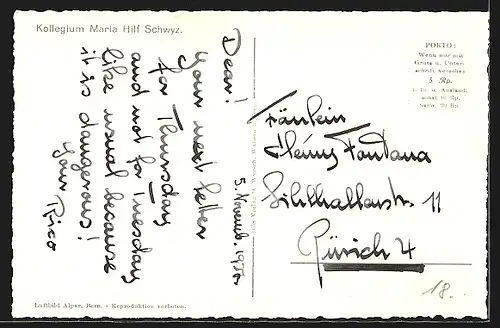 Kollegium Maria Hilf Schwyz.
Dear!
Your next letter
for Thursday
and not for Tuesday
like usual because
it is dangerous!
Your Rico
5. Novemb. 195
PORTO:
Wenn nur mit
Gruss u. Unter-
schrift versehen
5 Rp.
u. Ausland,
sonst 10 Rp.
bezw. 20 Rp.
Fräulein
Fontana
Sihlhallenstr. 11
Zürich 4
18.-
Luftbild Alpar, Bern. - Reproduktion verboten.